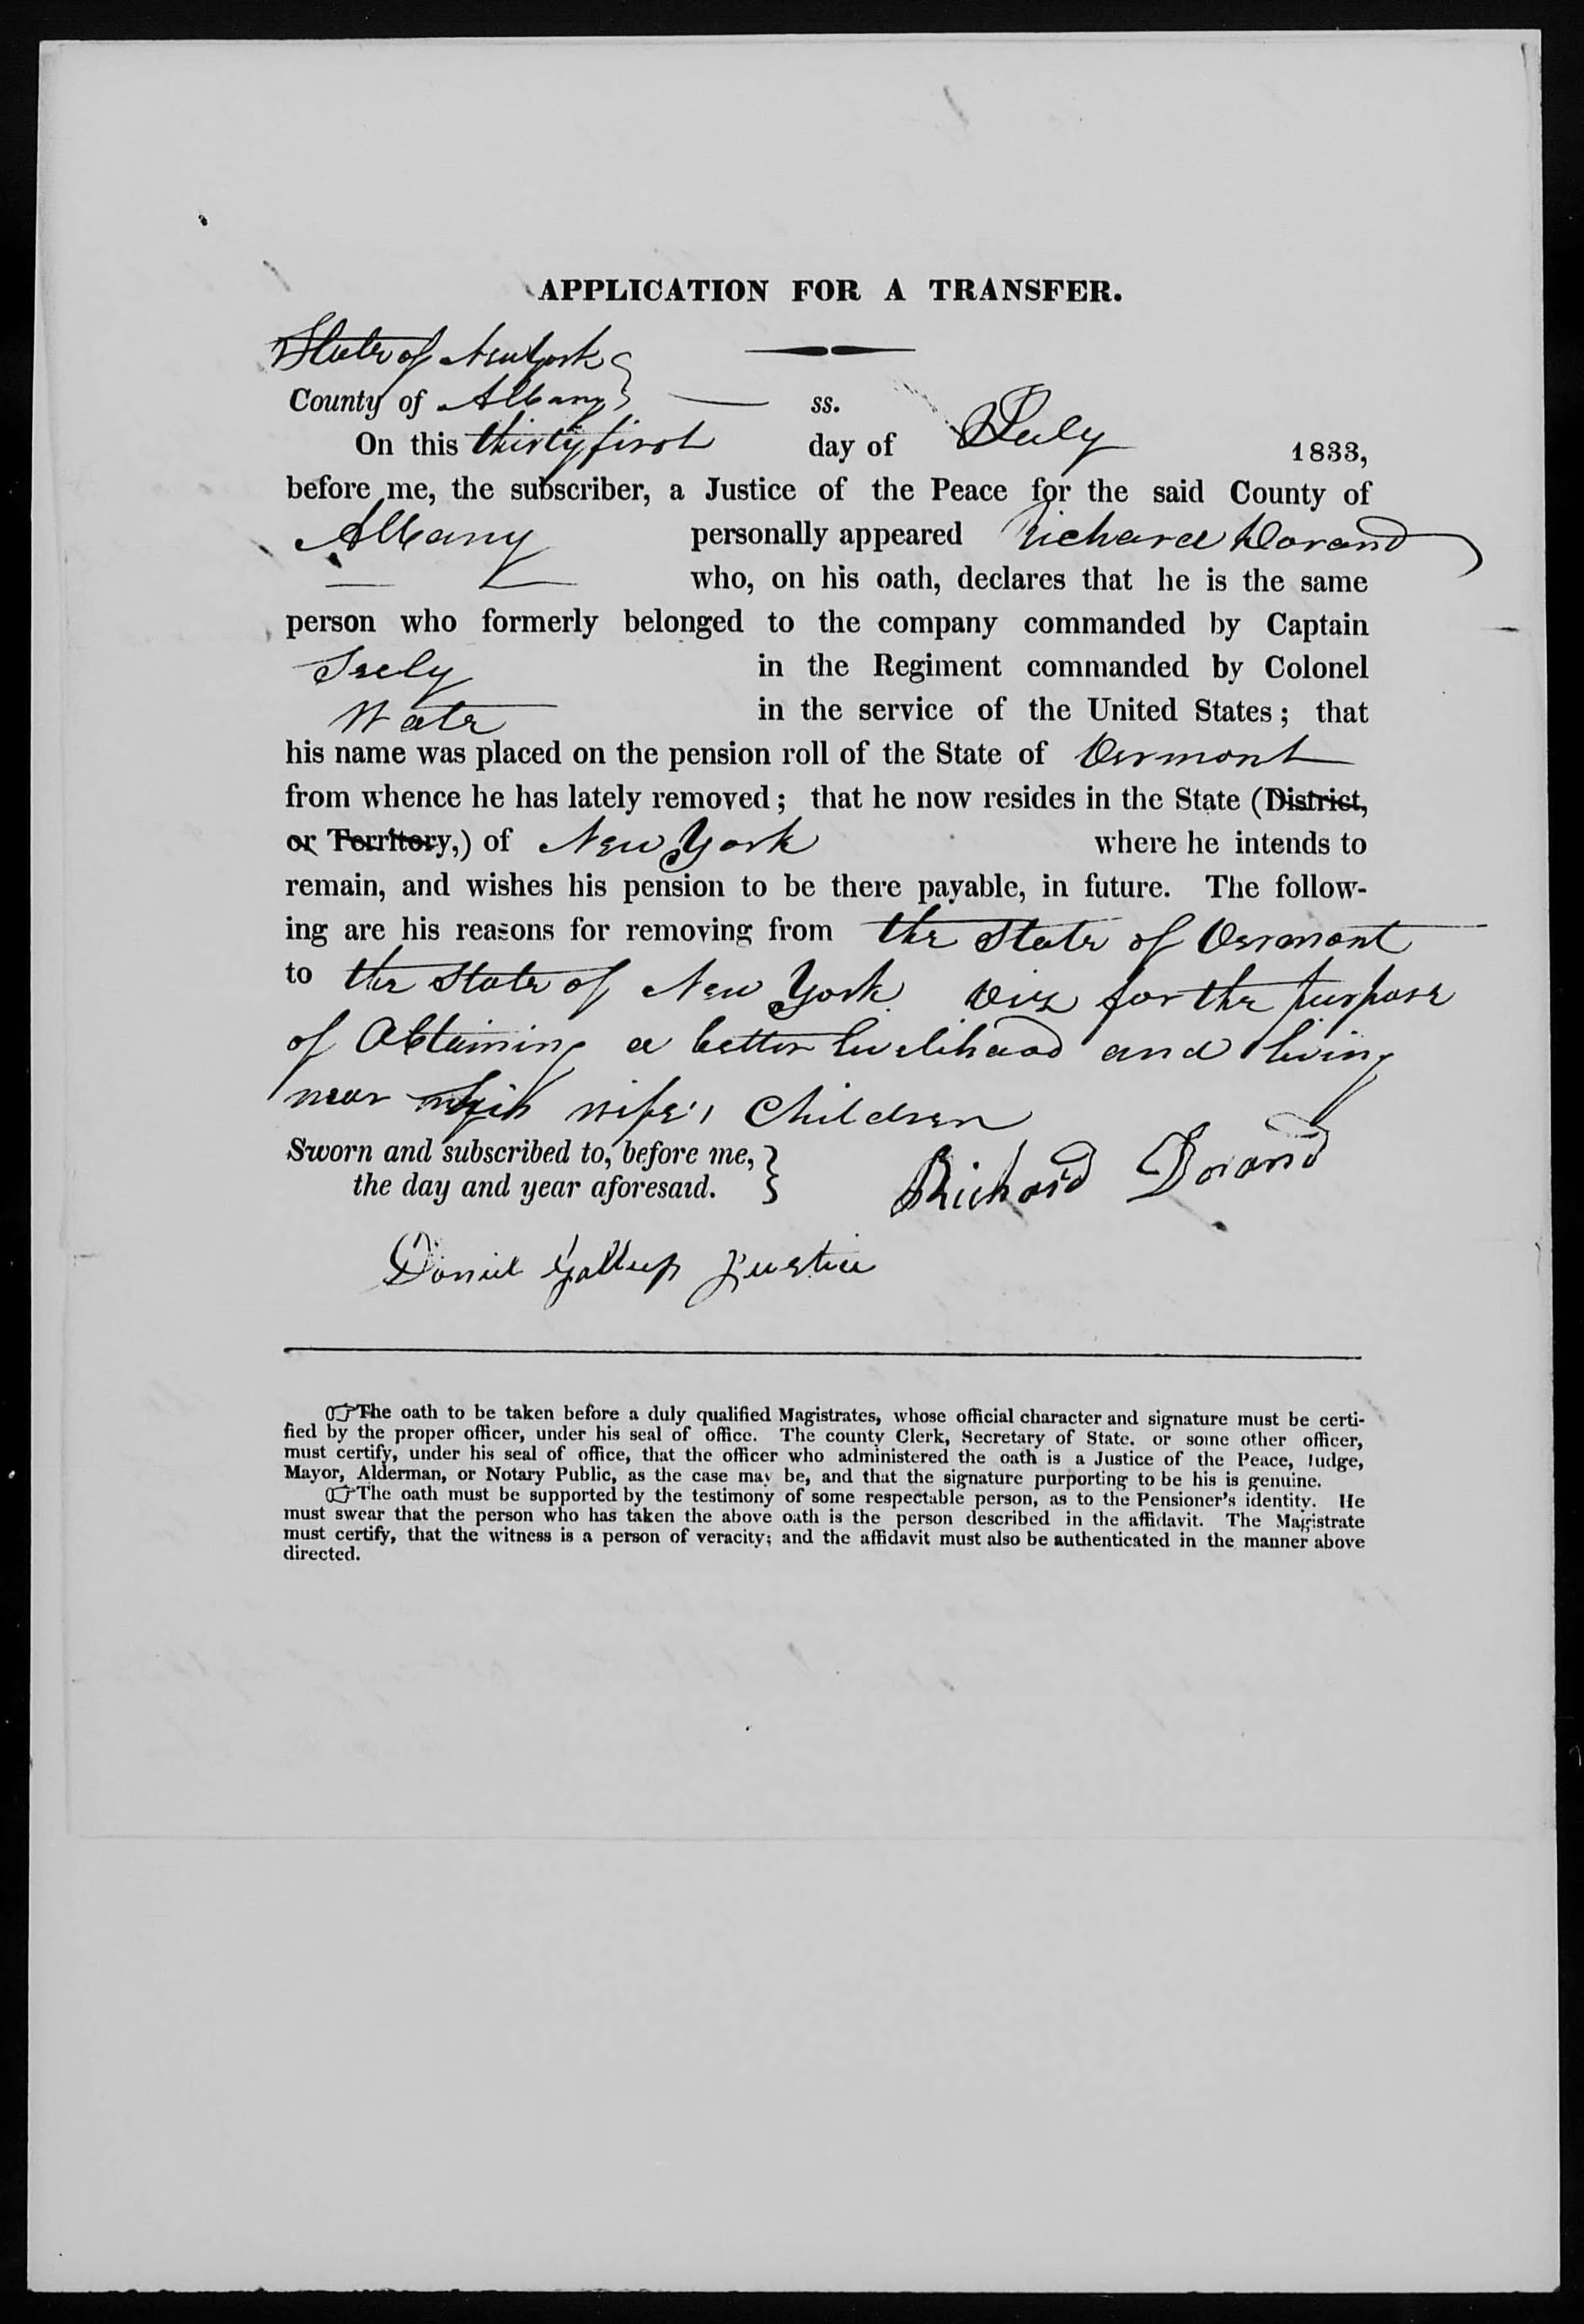 APPLICATION FOR A TRANSFER.
State of New York }
County of Albany } ss.
On this thirty first day of July 1833,
before me, the subscriber, a Justice of the Peace for the said County of
Albany personally appeared Richard Dorand
who, on his oath, declares that he is the same
person who formerly belonged to the company commanded by Captain
Seely in the Regiment commanded by Colonel
Wate in the service of the United States; that
his name was placed on the pension roll of the State of Vermont
from whence he has lately removed; that he now resides in the State (District,
or Territory,) of New York where he intends to
remain, and wishes his pension to be there payable, in future. The follow-
ing are his reasons for removing from the State of Vermont
to the State of New York Viz for the purpose
of Obtaining a better livelihood and living
near his wife's Children
Sworn and subscribed to, before me, }
the day and year aforesaid. } Richard Dorand
Daniel Gallup Justice
☞The oath to be taken before a duly qualified Magistrates, whose official character and signature must be certi-
fied by the proper officer, under his seal of office. The county Clerk, Secretary of State. or some other officer,
must certify, under his seal of office, that the officer who administered the oath is a Justice of the Peace, Judge,
Mayor, Alderman, or Notary Public, as the case may be, and that the signature purporting to be his is genuine.
☞The oath must be supported by the testimony of some respectable person, as to the Pensioner's identity. He
must swear that the person who has taken the above oath is the person described in the affidavit. The Magistrate
must certify, that the witness is a person of veracity; and the affidavit must also be authenticated in the manner above
directed.